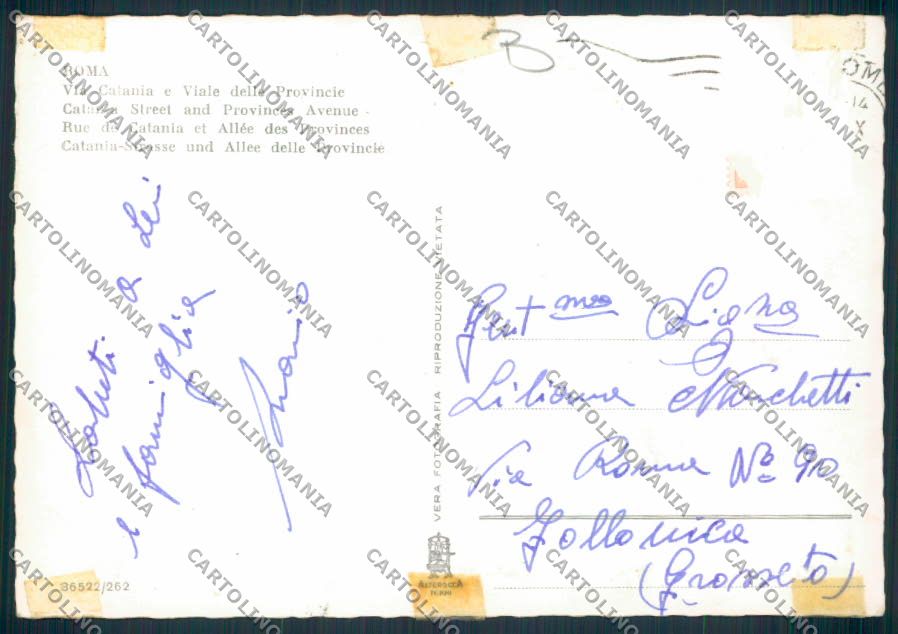 ROMA
Via Catania e Viale delle Provincie
Catania Street and Provinces Avenue -
Rue de Catania et Allée des Provinces
Catania-Strasse und Allee delle Provincie
Saluti a Lei
e famiglia
Mario
VERA FOTOGRAFIA RIPRODUZIONE VIETATA
Gent ma Sig.na
Liliana Marchetti
Via Roma No 90
Follonica
(Grosseto)
36522/262
ALTEROCCA
TERNI
CARTOLINOMANIA